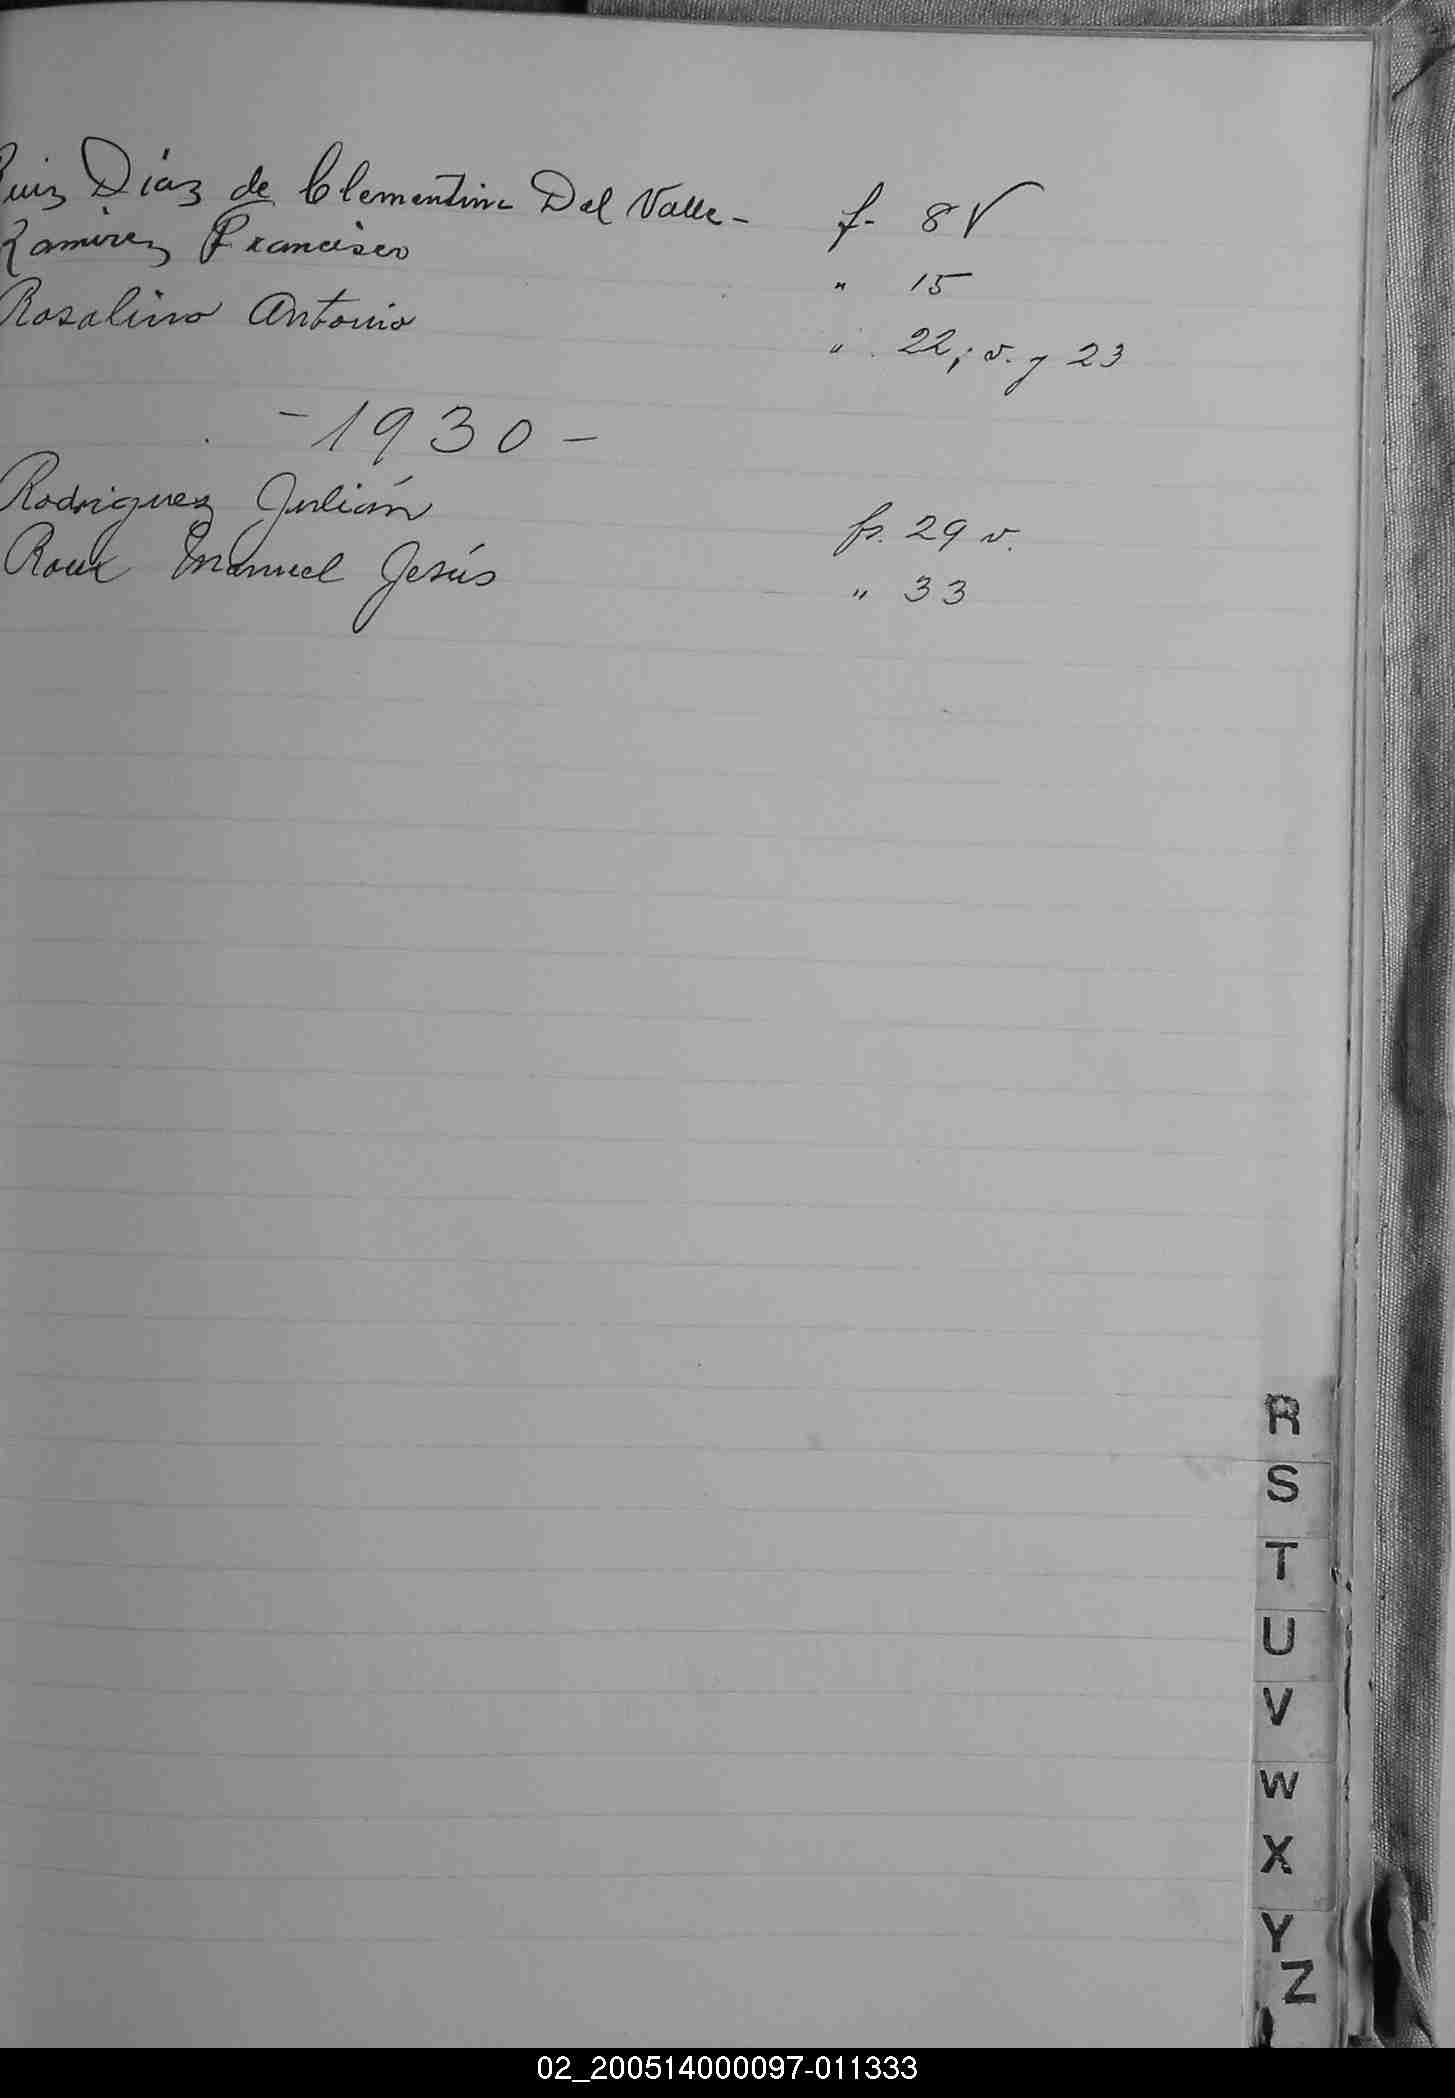 Ruiz Díaz de Clementina Del Valle - f- 8V
Ramirez Francisco " 15
Rosalino Antonio " 22, v. y 23
- 1930 -
Rodriguez Julián fs. 29 v.
Roux Manuel Jesús " 33
R
S
T
U
V
W
X
Y
Z
02_200514000097-011333